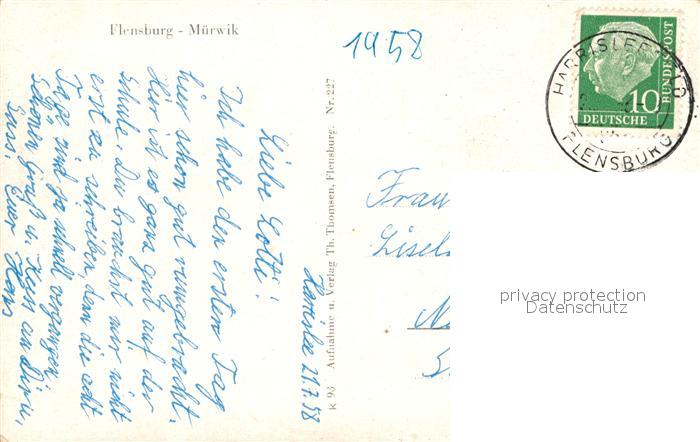 Flensburg - Mürwik
1958
HARRISLEEFELD
FLENSBURG
10
DEUTSCHE
BUNDESPOST
Harrislee 21.7.58
Liebe Lotti!
Ich habe den ersten Tag
hier schon gut rumgebracht.
Hier ist es ganz gut auf der
Schule. Du brauchst mir nicht
erst zu schreiben, denn die acht
Tage sind ja schnell vergangen.
Schönen Gruß u. Kuss an Dich,
Euer Hans
K 93 Aufnahme u. Verlag Th. Thomsen, Flensburg. Nr. 227
Frau
Lisel
privacy protection
Datenschutz